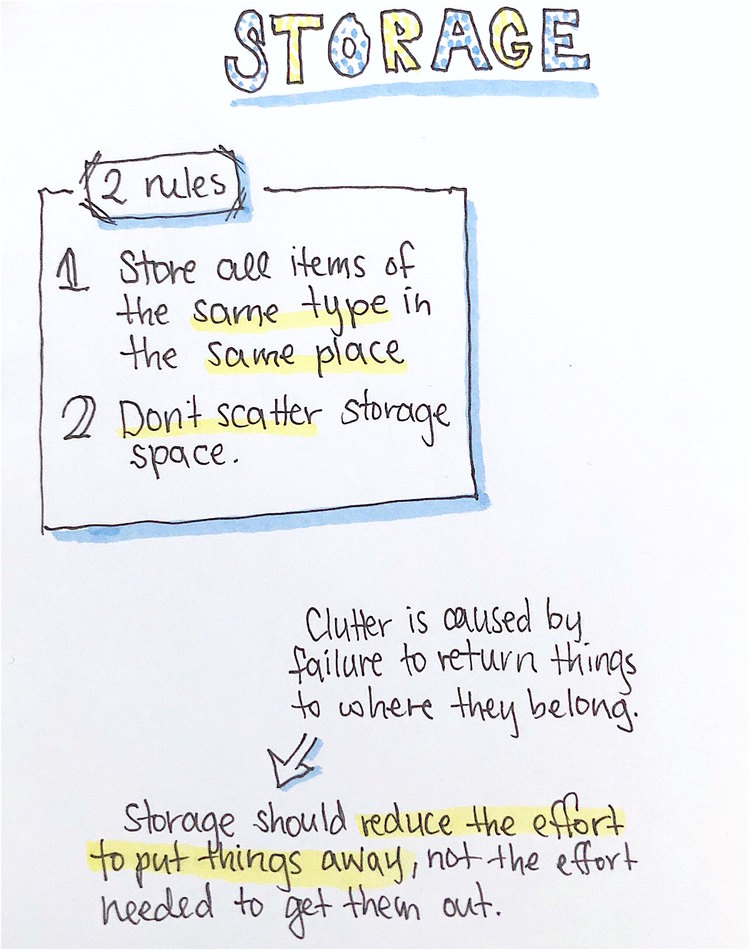 STORAGE
2 rules
1 Store all items of
the same type in
the same place
2 Don't scatter storage
space.
Clutter is caused by
failure to return things
to where they belong.
Storage should reduce the effort
to put things away, not the effort
needed to get them out.